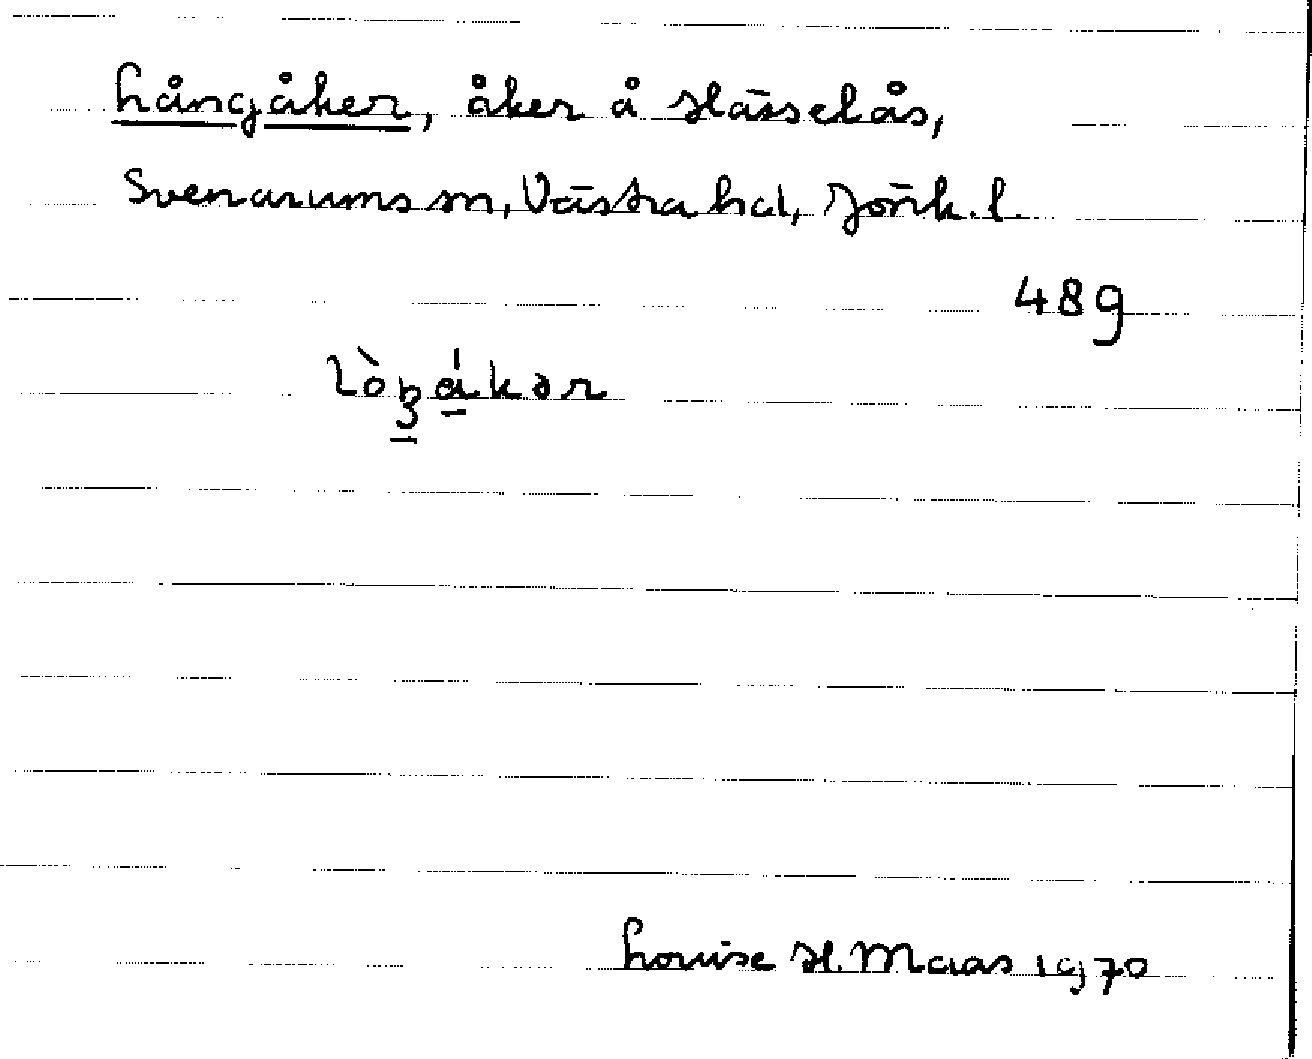 Långåker, åker å Hässelås,
Svenarums sn, Västra hd, Jönk. l.
489
Louise H. Maas 1970